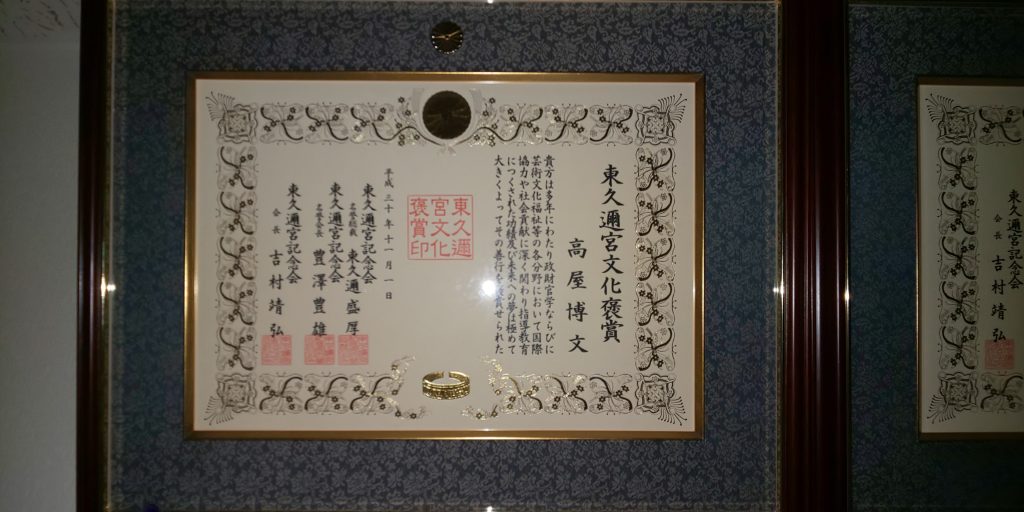 東久邇宮文化褒賞
高屋博文
貴方は多年にわたり政財官学ならびに
芸術文化福祉等の各分野において国際
協力や社会貢献に深く関わり指導教育
につくされた功績及び未来への夢は極めて
大きくよってその善行を
賞せられた
東久邇
宮文化
褒賞印
平成三十年十一月一日
東久邇宮記念会
東久邇盛厚
東久邇宮記念会
名誉会長 豊澤豊雄
東久邇宮記念会
会長 吉村靖弘
東久邇宮記念会
会長 吉村靖弘